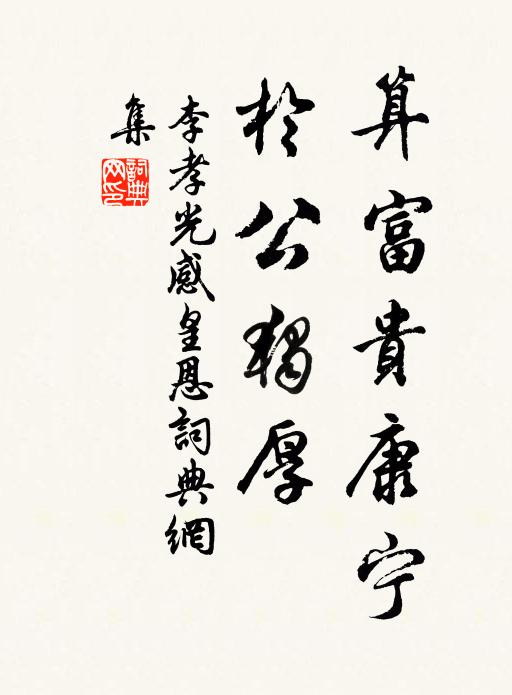 算富貴康宁
於公獨厚
李孝光感皇恩詞典網
集
詞典
网印